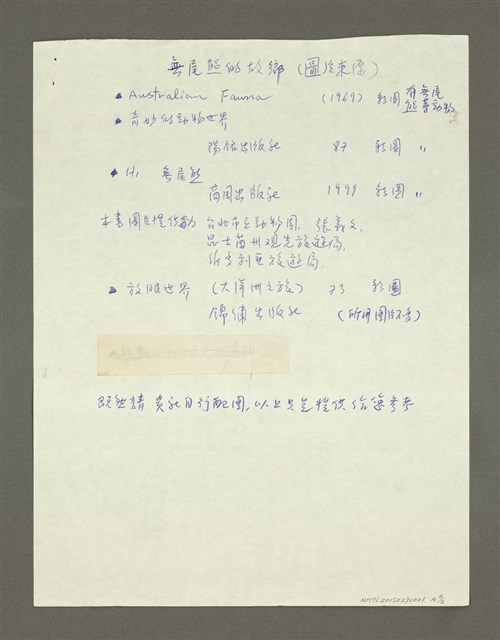 無尾熊的故鄉 (圖片來源)
Australian Fauna (1969) 彩圖 有無尾熊等動物
奇妙的動物世界
陽銘出版社 87 彩圖 〃
Hi 無尾熊
茵園出版社 1999 彩圖 〃
本書圖片提供為 台北市立動物園. 張義文.
昆士蘭州觀光旅遊局.
旅遊局.
放眼世界 (大洋洲之旅) 73 彩圖
錦繡出版社 (所用圖片不多)
既然請 貴社自行配圖, 以上只是提供給您參考
NMTL20150030001